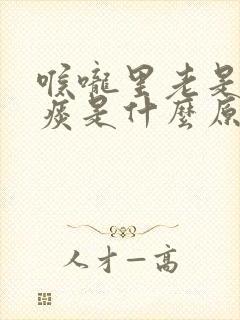 喉嚨里老是
痰是什麼原
人才一高